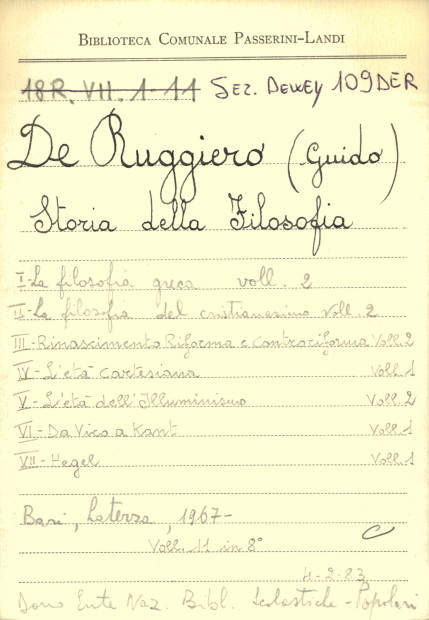 BIBLIOTECA COMUNALE PASSERINI-LANDI
18R. VII. 1-11 Sez. Dewey 109DER
De Ruggiero (Guido)
Storia della Filosofia
I-La filosofia greca voll. 2
II-La filosofia del cristianesimo Voll. 2
III-Rinascimento Riforma e Controriforma Voll. 2
IV-L'età cartesiana Voll. 1
V-L'età dell'Illuminismo Voll. 2
VI-Da Vico a Kant Voll. 1
VII-Hegel Voll. 1
Bari, Laterza, 1967-
Voll. 11 in 8°
C
4-2-83
Dono Ente Naz. Bibl. Scolastiche-Popolari